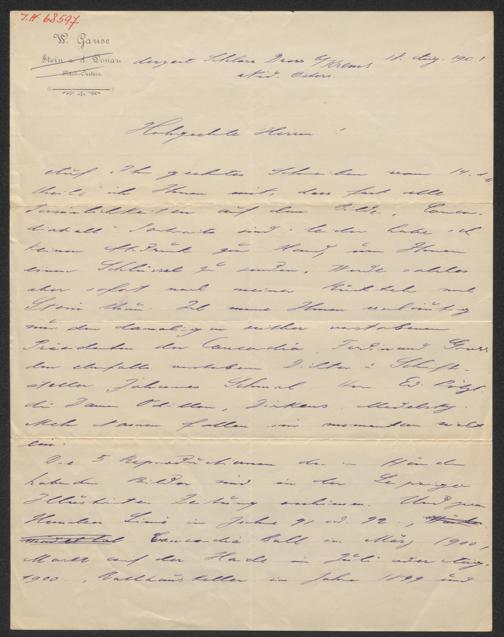 J.N. 68597
W. Gause
Stein a. d. Donau
derzeit Schloss b/Krems 18. Aug. 1901
Nid. Östr.
Hochgeehrte Herren!
Auf Ihr geehrtes Schreiben vom 14.
theile ich Ihnen mit, dass fast alle
Persönlichkeiten auf dem Bilde, Concor-
diaball Portraits sind. Leider habe ich
keinen Abdruck zur Hand, um Ihnen
einen Schlüssel zu senden, werde solches
aber sofort nach meiner Rückkehr nach
Stein thun. Ich nenne Ihnen vorläufig
nur den damaligen seither verstorbenen
Präsidenten der Concordia, Ferdinand Gross
den ebenfalls Dichter u Schrift-
steller Johannes
die Damen Odillon,
Mehr Namen fallen im momente nicht
ein.
Die 5 Reproductionen der in Händen
habenden Bilder sind in der Leipziger
Illustrirten Zeitung erschienen. Und zwar
im Jahre 91 od 92,
Concordia Ball im März 1900,
Markt auf der Haide im Juli oder Aug.
1900, Rathhauskeller im Jahre 1899 und